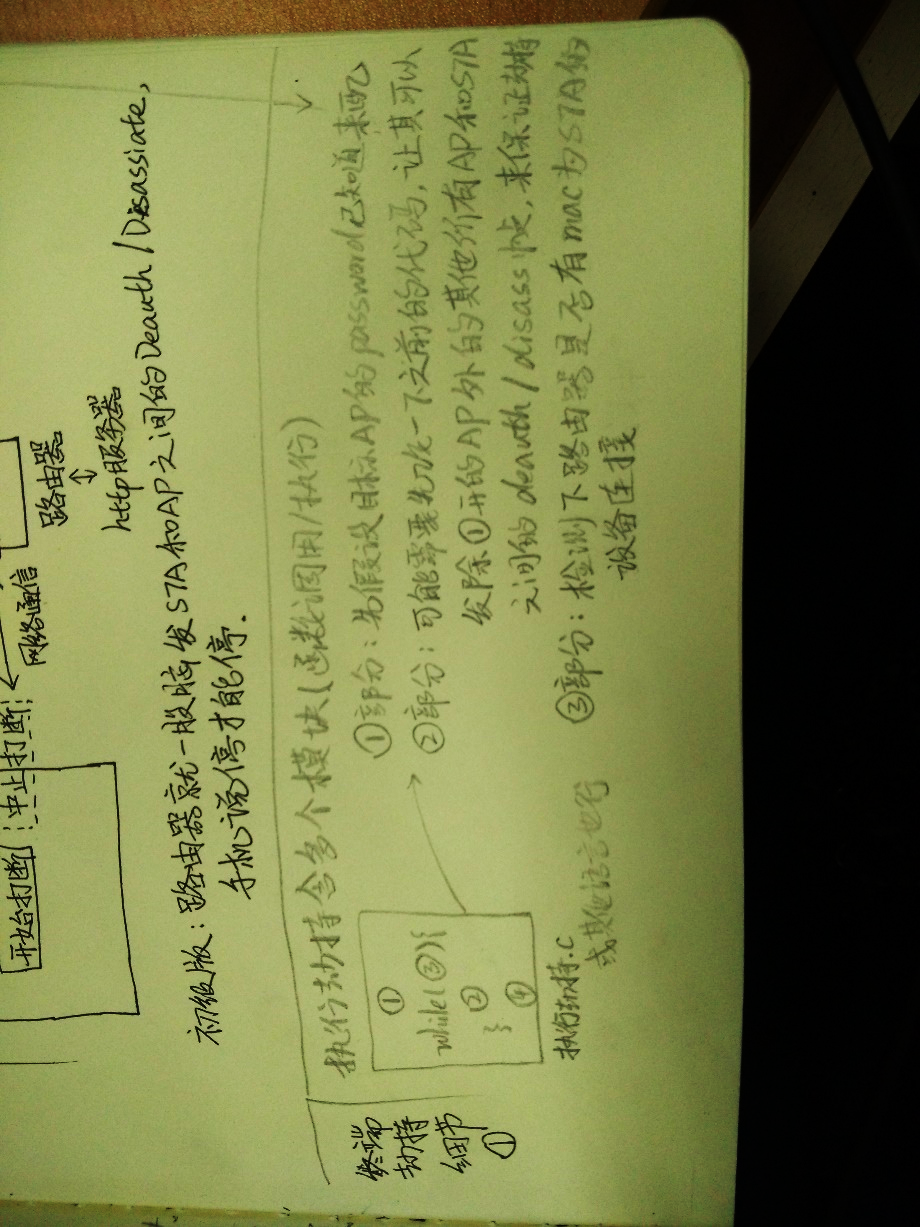 开始打断 中止打断
网络通信
路由器
http服务器
初级版：路由器就一股脑发STA和AP之间的Deauth/Disassiate,
手机说停才能停.
终端
劫持
细节
①
执行劫持含多个模块(函数调用/执行)
①
while(③){
②
} ④
执行劫持.c
或其他语言也行
①部分：先假设目标AP的password已知道来配
②部分：可能需要先改一下之前的代码,让其可以
发除①开的AP外的其他所有AP和STA
之间的deauth/disass帧,来保证劫持
③部分：检测下路由器是否有mac为STA的
设备连接